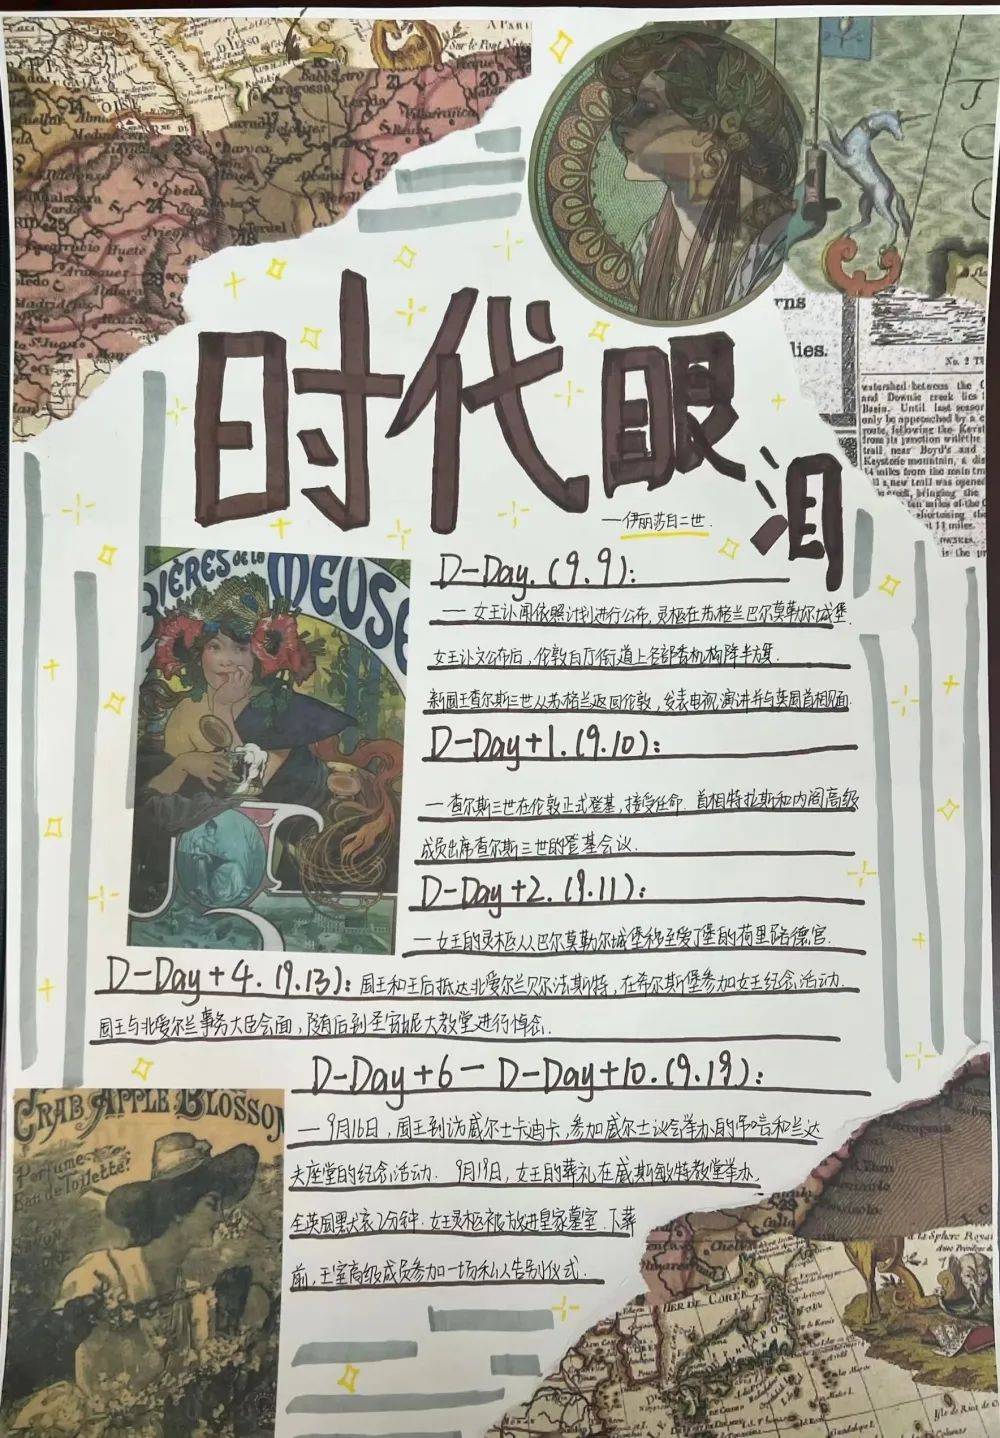 时代眼泪
—伊丽莎白二世.
rns
lies.
No. 2 T
watershed between the C
and Downie creek lies
Basin. Until last season
only be approached by a c
route, following the Keyst
from its junction with the
trail near Boyd's and
Keystone mountain, a dis
14 miles from the main tr
a new trail was opened
creek, bringing the
ten miles of the
shortening the
11 miles.
is the pr
BIÈRES de la MEUSE
D-Day. (9.9):
— 女王讣闻依照计划进行公布,灵柩在苏格兰巴尔莫勒尔城堡.
女王讣文公布后,伦敦白厅街道上各部委机构降半旗.
新国王查尔斯三世从苏格兰返回伦敦,发表电视演讲并与英国首相见面.
D-Day+1.(9.10):
— 查尔斯三世在伦敦正式登基,接受任命.首相特拉斯和内阁高级
成员出席查尔斯三世的登基会议.
D-Day+2.(9.11):
— 女王的灵柩从巴尔莫勒尔城堡移至爱丁堡的荷里路德宫.
D-Day+4.(9.13): 国王和王后抵达北爱尔兰贝尔法斯特,在希尔斯堡参加女王纪念活动.
国王与北爱尔兰事务大臣会面,随后到圣安妮大教堂进行悼念.
D-Day+6— D-Day+10.(9.19):
— 9月16日,国王到访威尔士卡迪夫,参加威尔士议会举办的吊唁和兰达
夫座堂的纪念活动. 9月19日,女王的葬礼在威斯敏特教堂举办,
全英国默哀2分钟.女王灵柩被放进皇家墓室.下葬
前,王室高级成员参加一场私人告别仪式.
CRAB APPLE BLOSSOM
Perfume
Eau de Toilette!